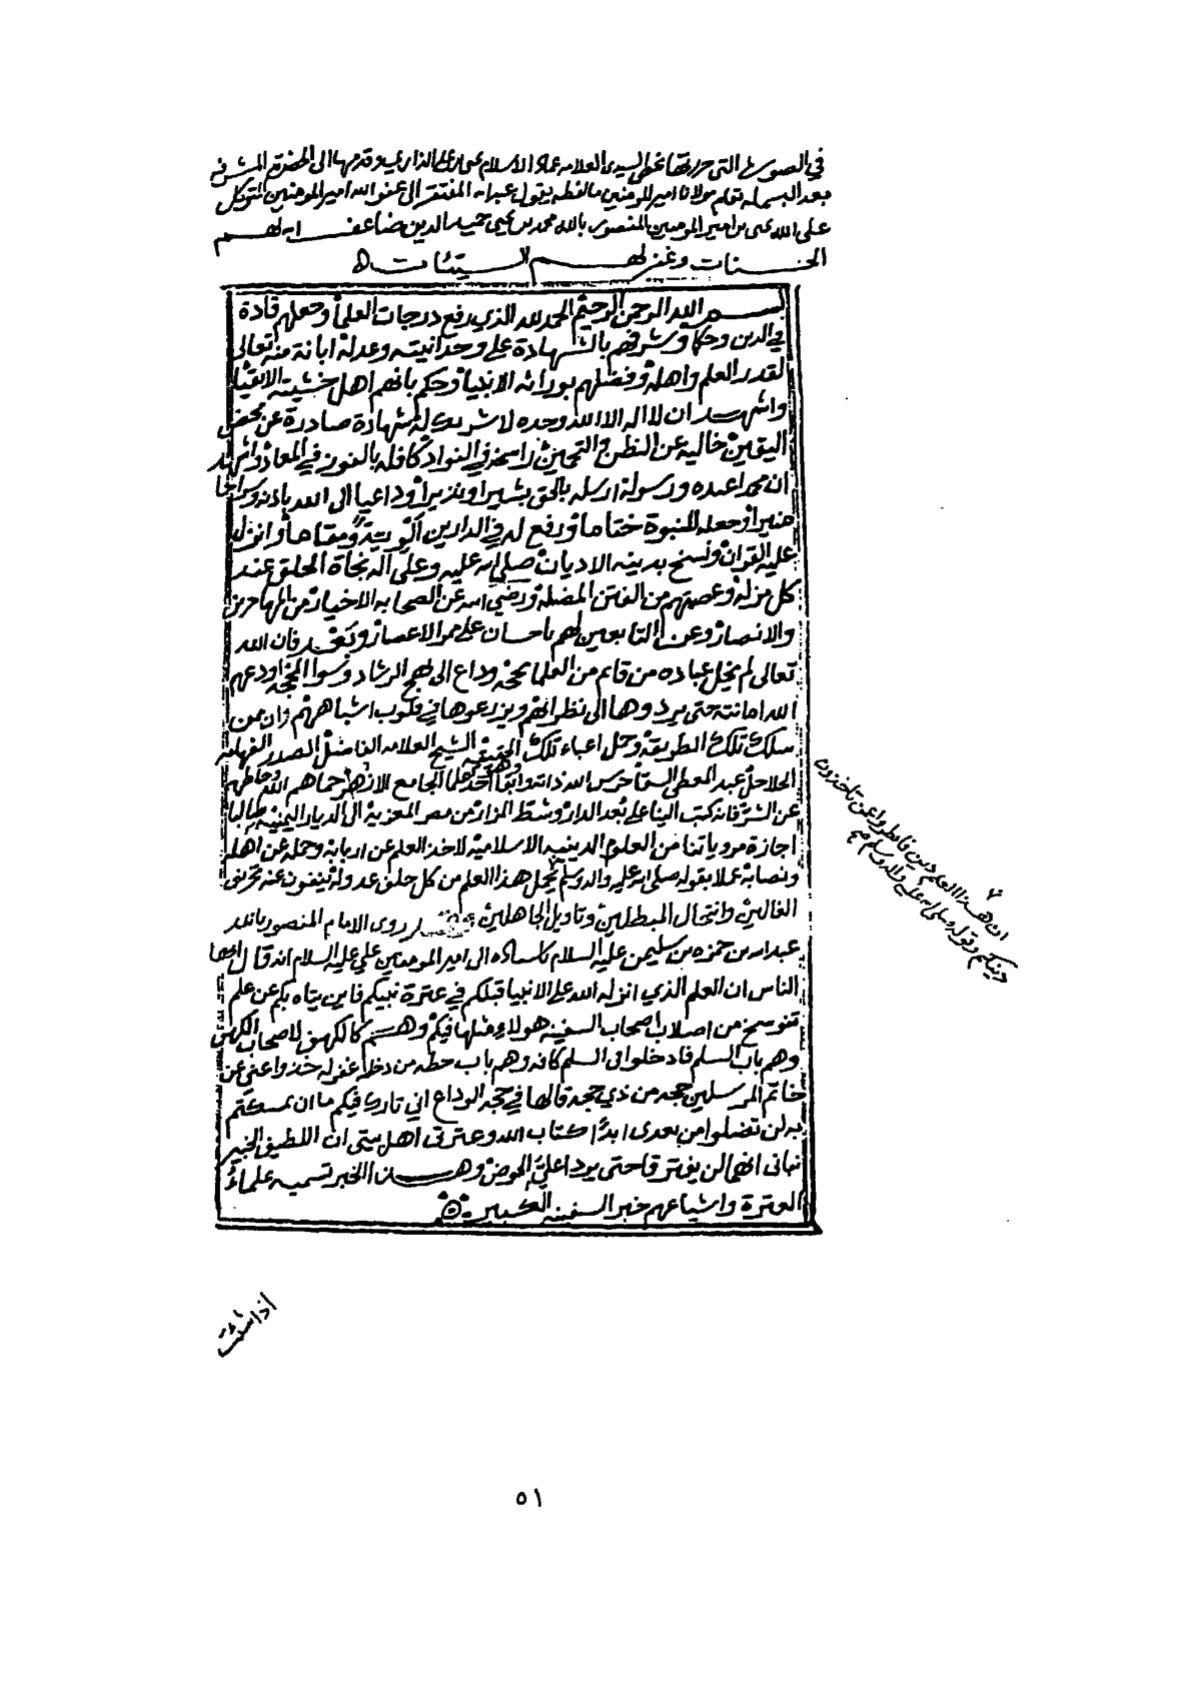 في الصورة التي حررتها على السيدي العلامه عماد الاسلام الذاري وقدمها الى الحضرة المشرفه
بعد البسمله بقلم مولانا امير المومنين مالفظه يقول عبدالله المفتقر الى عفو الله امير المومنين المتوكل
على الله يحيى بن امير المومنين المنصور بالله محمد بن يحيى حميد الدين ضاعف الله لهم
الحسنات وغفر لهم السيئات
بسم الله الرحمن الرحيم الحمد لله الذي رفع درجات العلما وجعلهم قادة
في الدين وحكما وشرفهم بالشهادة على وحدانيته وعدله ابانة منه تعالى
لقدر العلم واهله وفضلهم بوراثة الانبيا وحكم بانهم اهل خشيته الاتقيا
واشهد ان لا اله الا الله وحده لا شريك له شهادة صادرة عن محض
اليقين خاليه عن الظن والتخمين راسخة في الفواد كافله بالفوز في المعاد واشهد
ان محمدا عبده ورسوله ارسله بالحق بشيرا ونذيرا وداعيا الى الله باذنه وسراجا
منيرا وجعله للنبوة ختاما ورفع له في الدارين ومقاما وانزل
عليه القران ونسخ بدينه الاديان صلى الله عليه وعلى آله نجاة الخلق عند
كل مزلة وعصمتهم من الفتن المضله ورضي الله عن الصحابه الاخيار من المهاجرين
والانصار وعن التابعين لهم باحسان على ممر الاعصار وبعد فان الله
تعالى لم يخل عباده من قائم من العلما بحجة وداع الى نهج الرشاد اودعهم
الله امانته حتى يردوها الى نظرائهم ويزرعوها في قلوب اشباههم وان ممن
سلك تلك الطريقة وحمل اعباء تلك الحقيقه الشيخ العلامه الفاضل الصدر الفهامه
الحلاحل عبد المعطي السقا حرس الله ذاته وابقاه وهو احد علما الجامع الازهر حماهم الله وحاطهم
عن الشر فانه كتب الينا على بعد الدار وشط المزار من مصر المعزية الى الديار اليمنيه طالبا
اجازة مروياتنا من العلوم الدينيه الاسلامية لاخذ العلم عن اربابه وحمله عن اهله
ونصابه عملا بقوله صلى الله عليه واله وسلم يحمل هذا العلم من كل خلف عدوله ينفون عنه تحريف
الغالين وانتحال المبطلين وتاويل الجاهلين روى الامام المنصور بالله
عبدالله بن حمزه بن سليمن عليه السلام باسناده الى امير المومنين علي عليه السلام انه قال ايها
الناس ان العلم الذي انزله الله على الانبيا قبلكم في عترة نبيكم فاين يتاه بكم عن علم
تنوسخ من اصلاب اصحاب السفينه هولاء مثلها فيكم وهم كالكهف لاصحاب الكهف
وهم باب السلم فادخلوا في السلم كافه وهم باب حطه من دخله غفر له خذوا عني عن
خاتم المرسلين حجة من ذي حجة قالها في حجة الوداع اني تارك فيكم ما ان تمسكتم
به لن تضلوا من بعدي ابدا كتاب الله وعترتي اهل بيتي ان اللطيف الخبير
نباني انهما لن يفترقا حتى يردا علي الحوض وهذا الخبر تسميه علماء
العترة واشياعهم خبر السفينه الكبير
ان هذا العلم دين فانظروا عمن تاخذون
دينكم وقوله صلى الله عليه واله وسلم
٥١